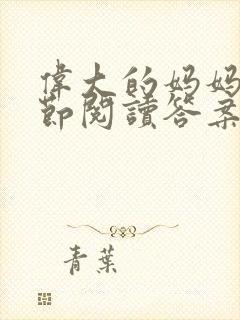 偉大的妈妈
節閱讀答案
青葉